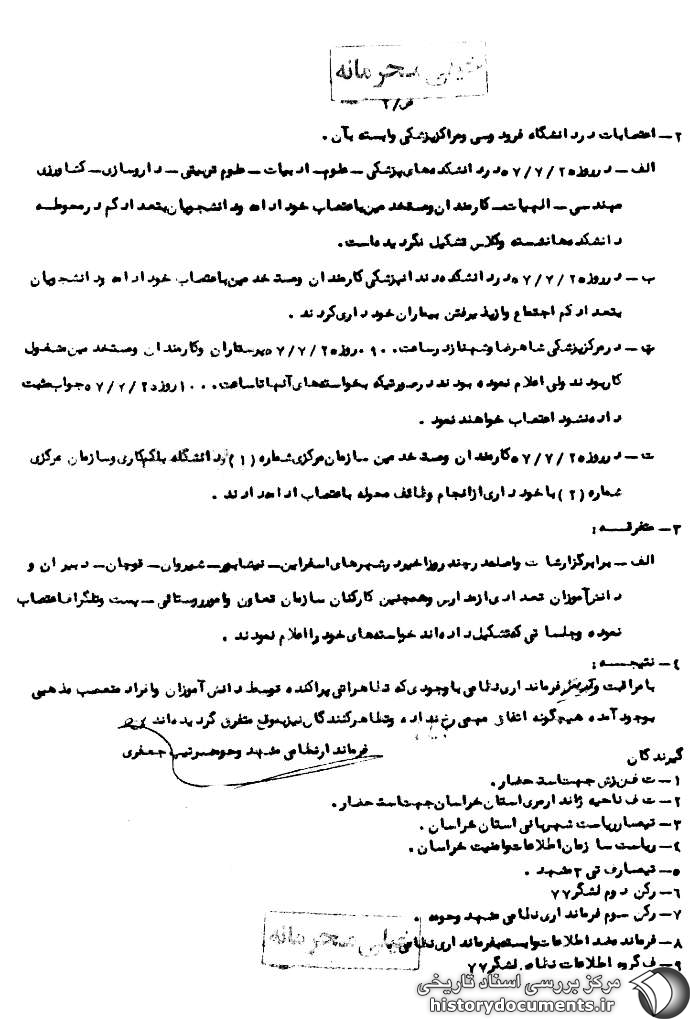 خیلی محرمانه
ص/۲
۲- اعتصابات در دانشگاه فردوسی و مراکز پزشکی وابسته بآن .
الف - در روز ۵۷/۷/۲۵ در دانشکده های پزشکی - علوم - ادبیات - علوم تربیتی - داروسازی - کشاورزی
مهندسی - الهیات - کارمندان و مستخدمین باعتصاب خود ادامه و دانشجویان بتعداد کم در محوطه
دانشکده ها نشسته و کلاس تشکیل نگردیده است.
ب - در روز ۵۷/۷/۲۵ در دانشکده دندانپزشکی کارمندان و مستخدمین باعتصاب خود ادامه و دانشجویان
بتعداد کم اجتماع و از پذیرفتن بیماران خودداری کردند .
پ - در مرکز پزشکی شاهرضا و شهناز در ساعت ۰۹۰۰ روز ۵۷/۷/۲۵ پرستاران و کارمندان و مستخدمین مشغول
کار بودند ولی اعلام نموده بودند در صورتیکه بخواسته های آنها تا ساعت ۱۰۰۰ روز ۵۷/۷/۲۵ جواب مثبت
داده نشود اعتصاب خواهند نمود .
ت - در روز ۵۷/۷/۲۵ کارمندان و مستخدمین سازمان مرکزی شماره (۱) دانشگاه با کم کاری و سازمان مرکزی
شماره (۲) با خودداری از انجام وظائف محوله باعتصاب ادامه دادند .
۳- متفرقه :
الف - برابر گزارشات واصله در چند روز اخیر در شهرهای اسفراین - نیشابور - شیروان - قوچان - دبیران و
دانش آموزان تعدادی از مدارس و همچنین کارکنان سازمان تعاون و امور روستائی - پست و تلگراف اعتصاب
نموده و جلساتی که تشکیل داده اند خواسته های خود را اعلام نمودند .
۴- نتیجه :
با مراقبت و فرمانداری نظامی با وجودی که تظاهراتی پراکنده توسط دانش آموزان و افراد متعصب مذهبی
بوجود آمده هیچگونه اتفاق مهمی رخ نداده و تظاهرکنندگان نیز بموقع متفرق گردیده اند
فرماندار نظامی مشهد و حومه سرتیپ جعفری
گیرندگان
۱- ت ف جهت استحضار .
۲- ت ف ناحیه ژاندارمری استان خراسان جهت استحضار .
۳- تیمسار ریاست شهربانی استان خراسان .
۴- ریاست سازمان اطلاعات و امنیت خراسان .
۵- تیمسار ف تی ۲ مشهد .
۶- رکن دوم لشگر ۷۷
۷- رکن سوم فرمانداری نظامی مشهد و حومه .
۸- فرمانده ضد اطلاعات وابسته بفرمانداری نظامی
۹- ف گروه اطلاعات نظامی لشگر ۷۷
خیلی محرمانه
مرکز بررسی اسناد تاریخی
historydocuments.ir